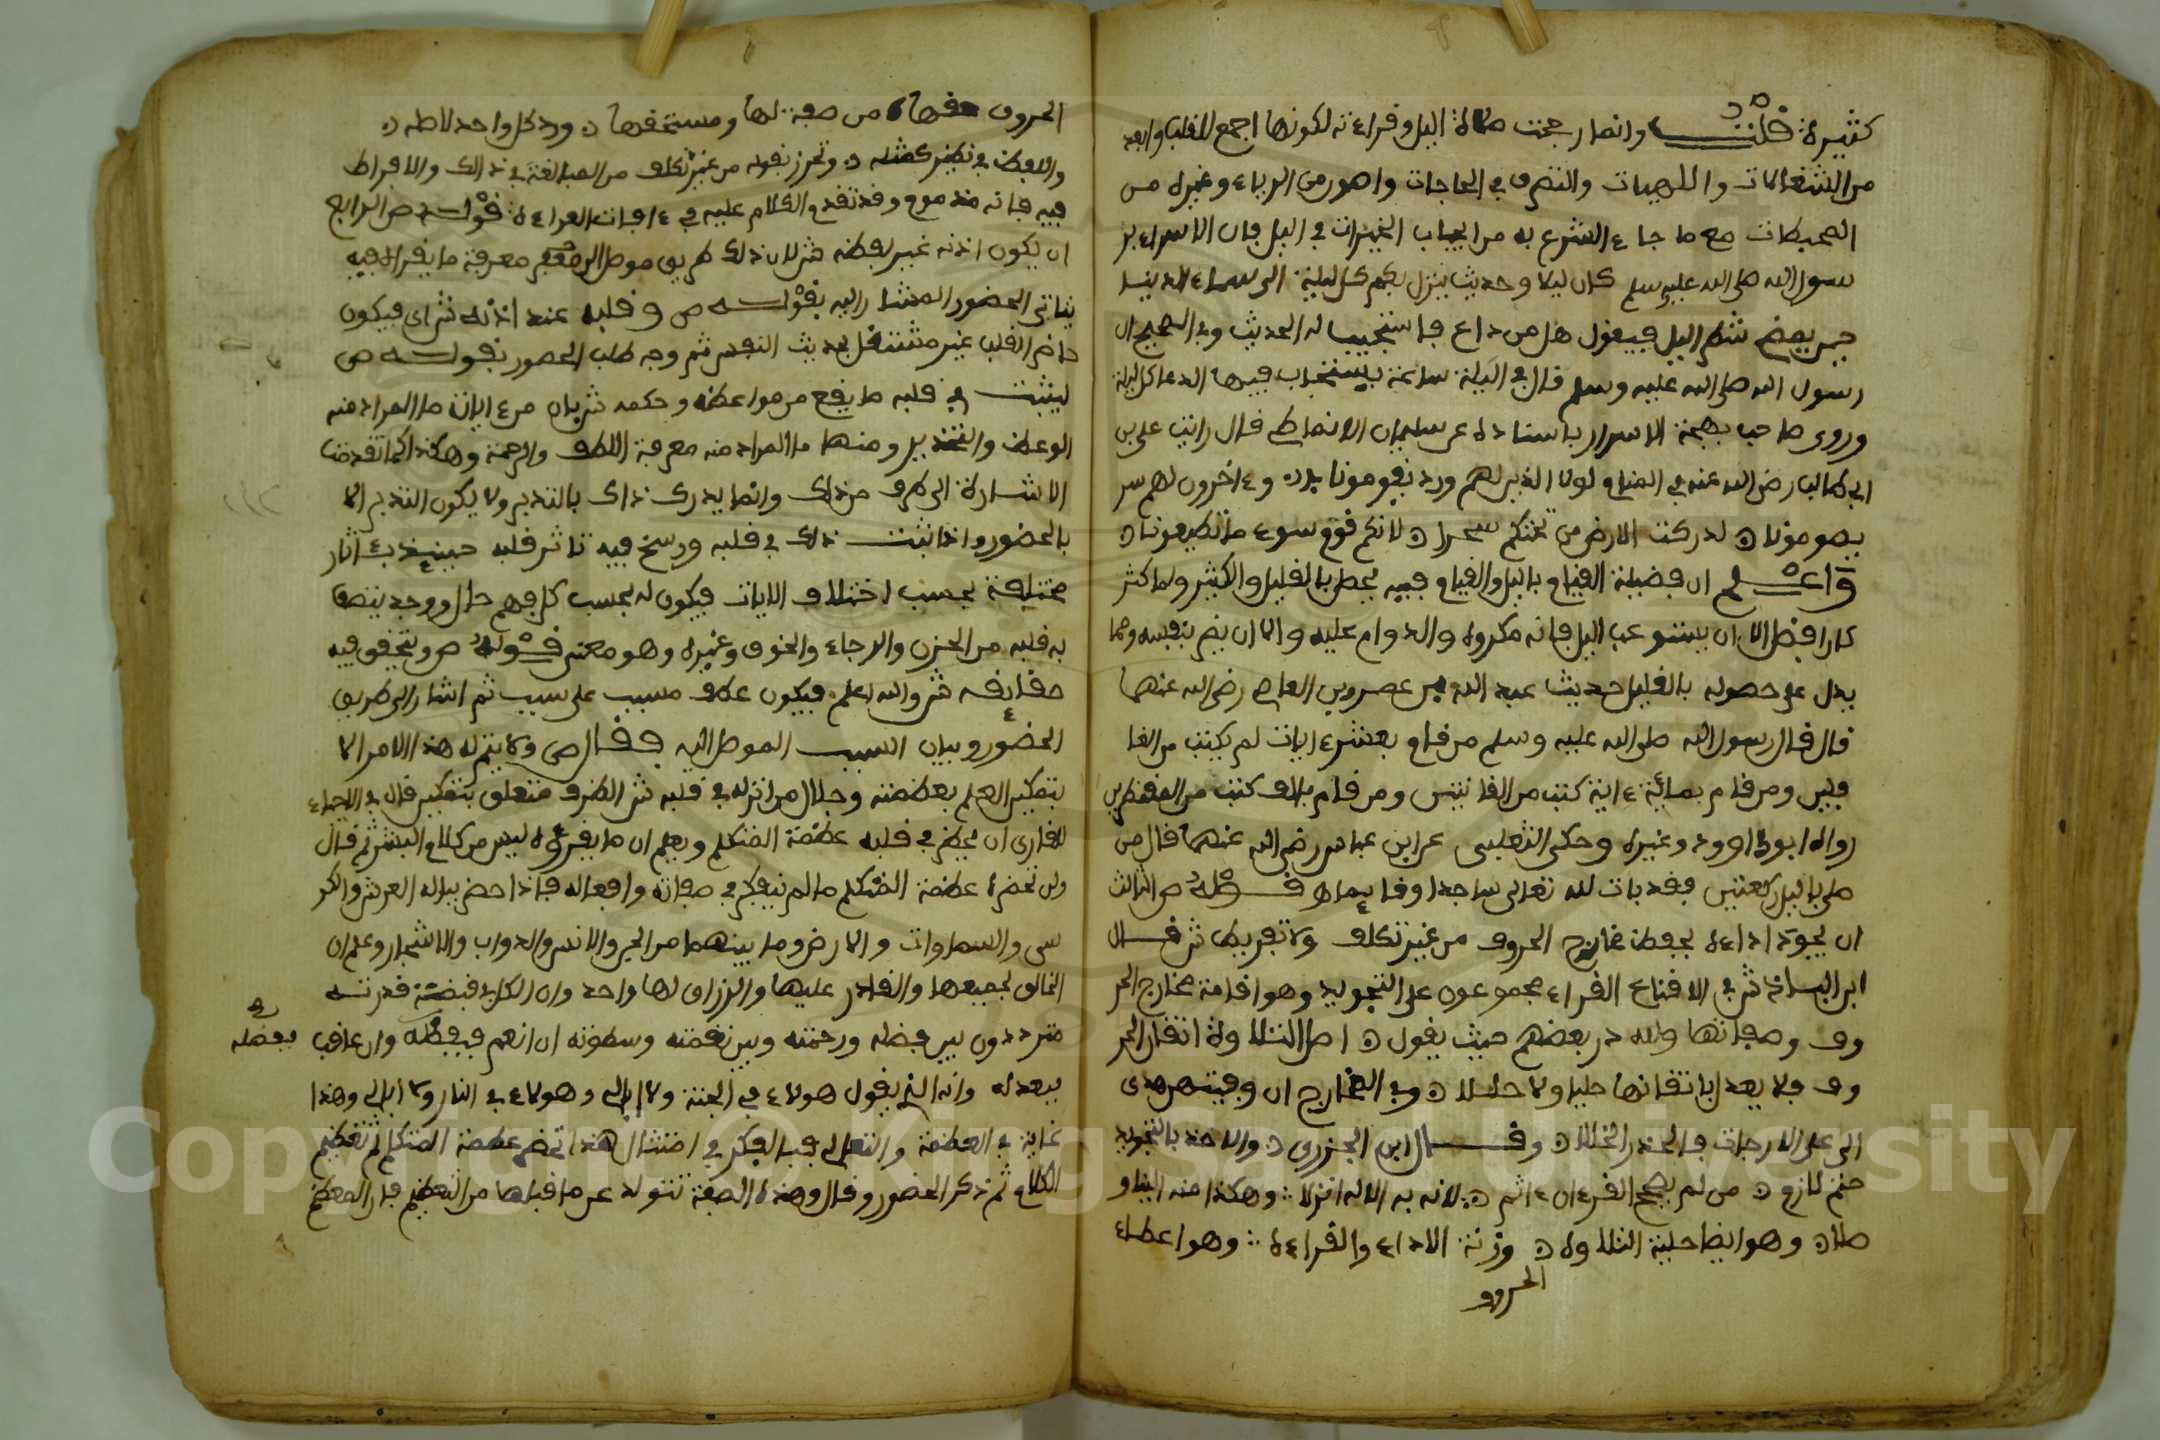 كثيرة قلت وانما رجحت صلاة اليل وقراءته لكونها اجمع للقلب وابعد
من الشغالات والملهيات والتصرف في الحاجات واصور من الرياء وغيره من
المحبطات مع ما جاء الشرع به من ايجاب الخيرات في اليل فان الاسراء بر
سول الله صلى الله عليه وسلم كان ليلا وحديث ينزل ربكم كل ليلة الى سماء الدنيا
حين يمضي شطر اليل فيقول هل من داع فاستجيب له الحديث وفي الصحيح ان
رسول الله صلى الله عليه وسلم قال في اليلة ساعة يستجاب فيها الدعا كل ليلة
وروى صاحب بهجة الاسرار باسناده عن سليمان الانماطي قال رايت علي بن
ابي طالب رضي الله عنه في المنام يقول لولا الذين لهم ورد يقومونا وءاخرون لهم سر
يصومونا لدكدكت الارض من تحتكم سحرا لانكم قوم سوء ما تطيعونا
واعلم ان فضيلة القيام باليل والقيام فيه يحصل بالقليل والكثير ولما كثر
كان افضل الا ان يستوعب اليل فانه مكروه والدوام عليه والا ان يضر بنفسه ومما
يدل على حصوله بالقليل حديث عبد الله بن عمرو بن العاص رضي الله عنهما
قال قال رسول الله صلى الله عليه وسلم من قام بعشر ءايات لم يكتب من الغا
فلين ومن قام بمائة ءاية كتب من القانتين ومن قام بالف كتب من المقنطرين
رواه ابو داوود وغيره وحكى الثعلبي عن ابن عباس رضي الله عنهما قال من
صلى باليل ركعتين فقد بات لله تعالى ساجدا وقايما قوله ص الثالث
ان يجود اداءه بحفظ مخارج الحروف من غير تكلف ولا تفريط ش قال
ابن الباذش في الاقناع القراء مجموعون على التجويد وهو اقامة مخارج الحر
وف وصفاتها ولله در بعضهم حيث يقول اصل التلاوة اتقان الحر
وف فلا يعد باتقانها حليا ولا حللا وفي المخارج ان وفيتهن هدى
الى على الدرجات فالحذر الخللا وقال ابن الجزري والاخذ بالتجويد
حتم لازم من لم يصحح القرءان ءاثم لانه به الاله انزلا وهكذا منه الينا و
صلا وهو ايضا حلية التلاوة وزينة الاداء والقراءة وهو اعطاء
الحروف
الحروف حقها من صفة لها ومستحقها ورد كل واحد لاصله
واللفظ في نظيره كمثله وتحرز بقوله من غير تكلف من المبالغة في ذالك والافراط
فيه فانه مذموم وقد تقدم الكلام عليه في ءافات القراءة قوله ص الرابع
ان يكون اذنه غير لفظه ش لان ذلك طريق موصل الى معرفة ما يقراه فيه
يتاتى الحضور المشار اليه بقوله ص وقلبه عند اذنه ش اي فيكون
حاضر القلب غير مشتغل بحديث النفس ثم وجه طلب الحضور بقوله ص
ليثبت في قلبه ما يقع من مواعظه وحكمه ش فان من ءايات ما المراد منه
الوعظ والتحذير ومنها ما المراد منه معرفة اللطف والرحمة وهكذا كما تقدمت
الاشارة الى طرف من ذلك وانما يدرك ذاك بالتدبر ولا يكون التدبر الا
بالحضور واذا ثبت ذلك في قلبه ورسخ فيه تاثر قلبه حينئذ بئاثار
مختلفة بحسب اختلاف الايات فيكون له بحسب كل فهم حال ووجد يتصف
به قلبه من الحزن والرجاء والخوف وغيره وهو معنى قوله ص ويتحقق فيه
حقائقه ش والله اعلم فيكون عطف مسبب على سبب ثم اشار الى طريق
الحضور وبيان السبب الموصل اليه فقال ص ولا يتم له هذا الامر الا
بتفكير العلم بعظمته وجلال من انزله في قلبه ش الظرف متعلق بتفكير قال في الاحياء
للقارئ ان يحظر في قلبه عظمة المتكلم ويعلم ان ما يقرؤه ليس من كلام البشر ثم قال
ولن تحضره عظمة المتكلم ما لم يتفكر في صفاته وافعاله فاذا حضر بباله العرش والكر
سي والسماوات والارض وما بينهما من الجن والانس والدواب والاشجار وعلم ان
الخالق لجميعها والقادر عليها والرزاق لها واحد وان الكل في قبضة قدرته
مترددون بين فضله ورحمته وبين نقمته وسطوته ان انعم فبفضله وان عاقب
بفضله
فبعدله وانه الذي يقول هولاء في الجنة ولا ابالي وهولاء في النار ولا ابالي وهذا
غاية في العظمة والتعالي فبالفكر في امتثال هذا تحضر عظمة المتكلم ثم تعظيم
الكلام ثم ذكر الحضور وقال وهذه الصفة تتولد عن ما قبلها من التعظيم فان المعظم
Copyright © King Saud University